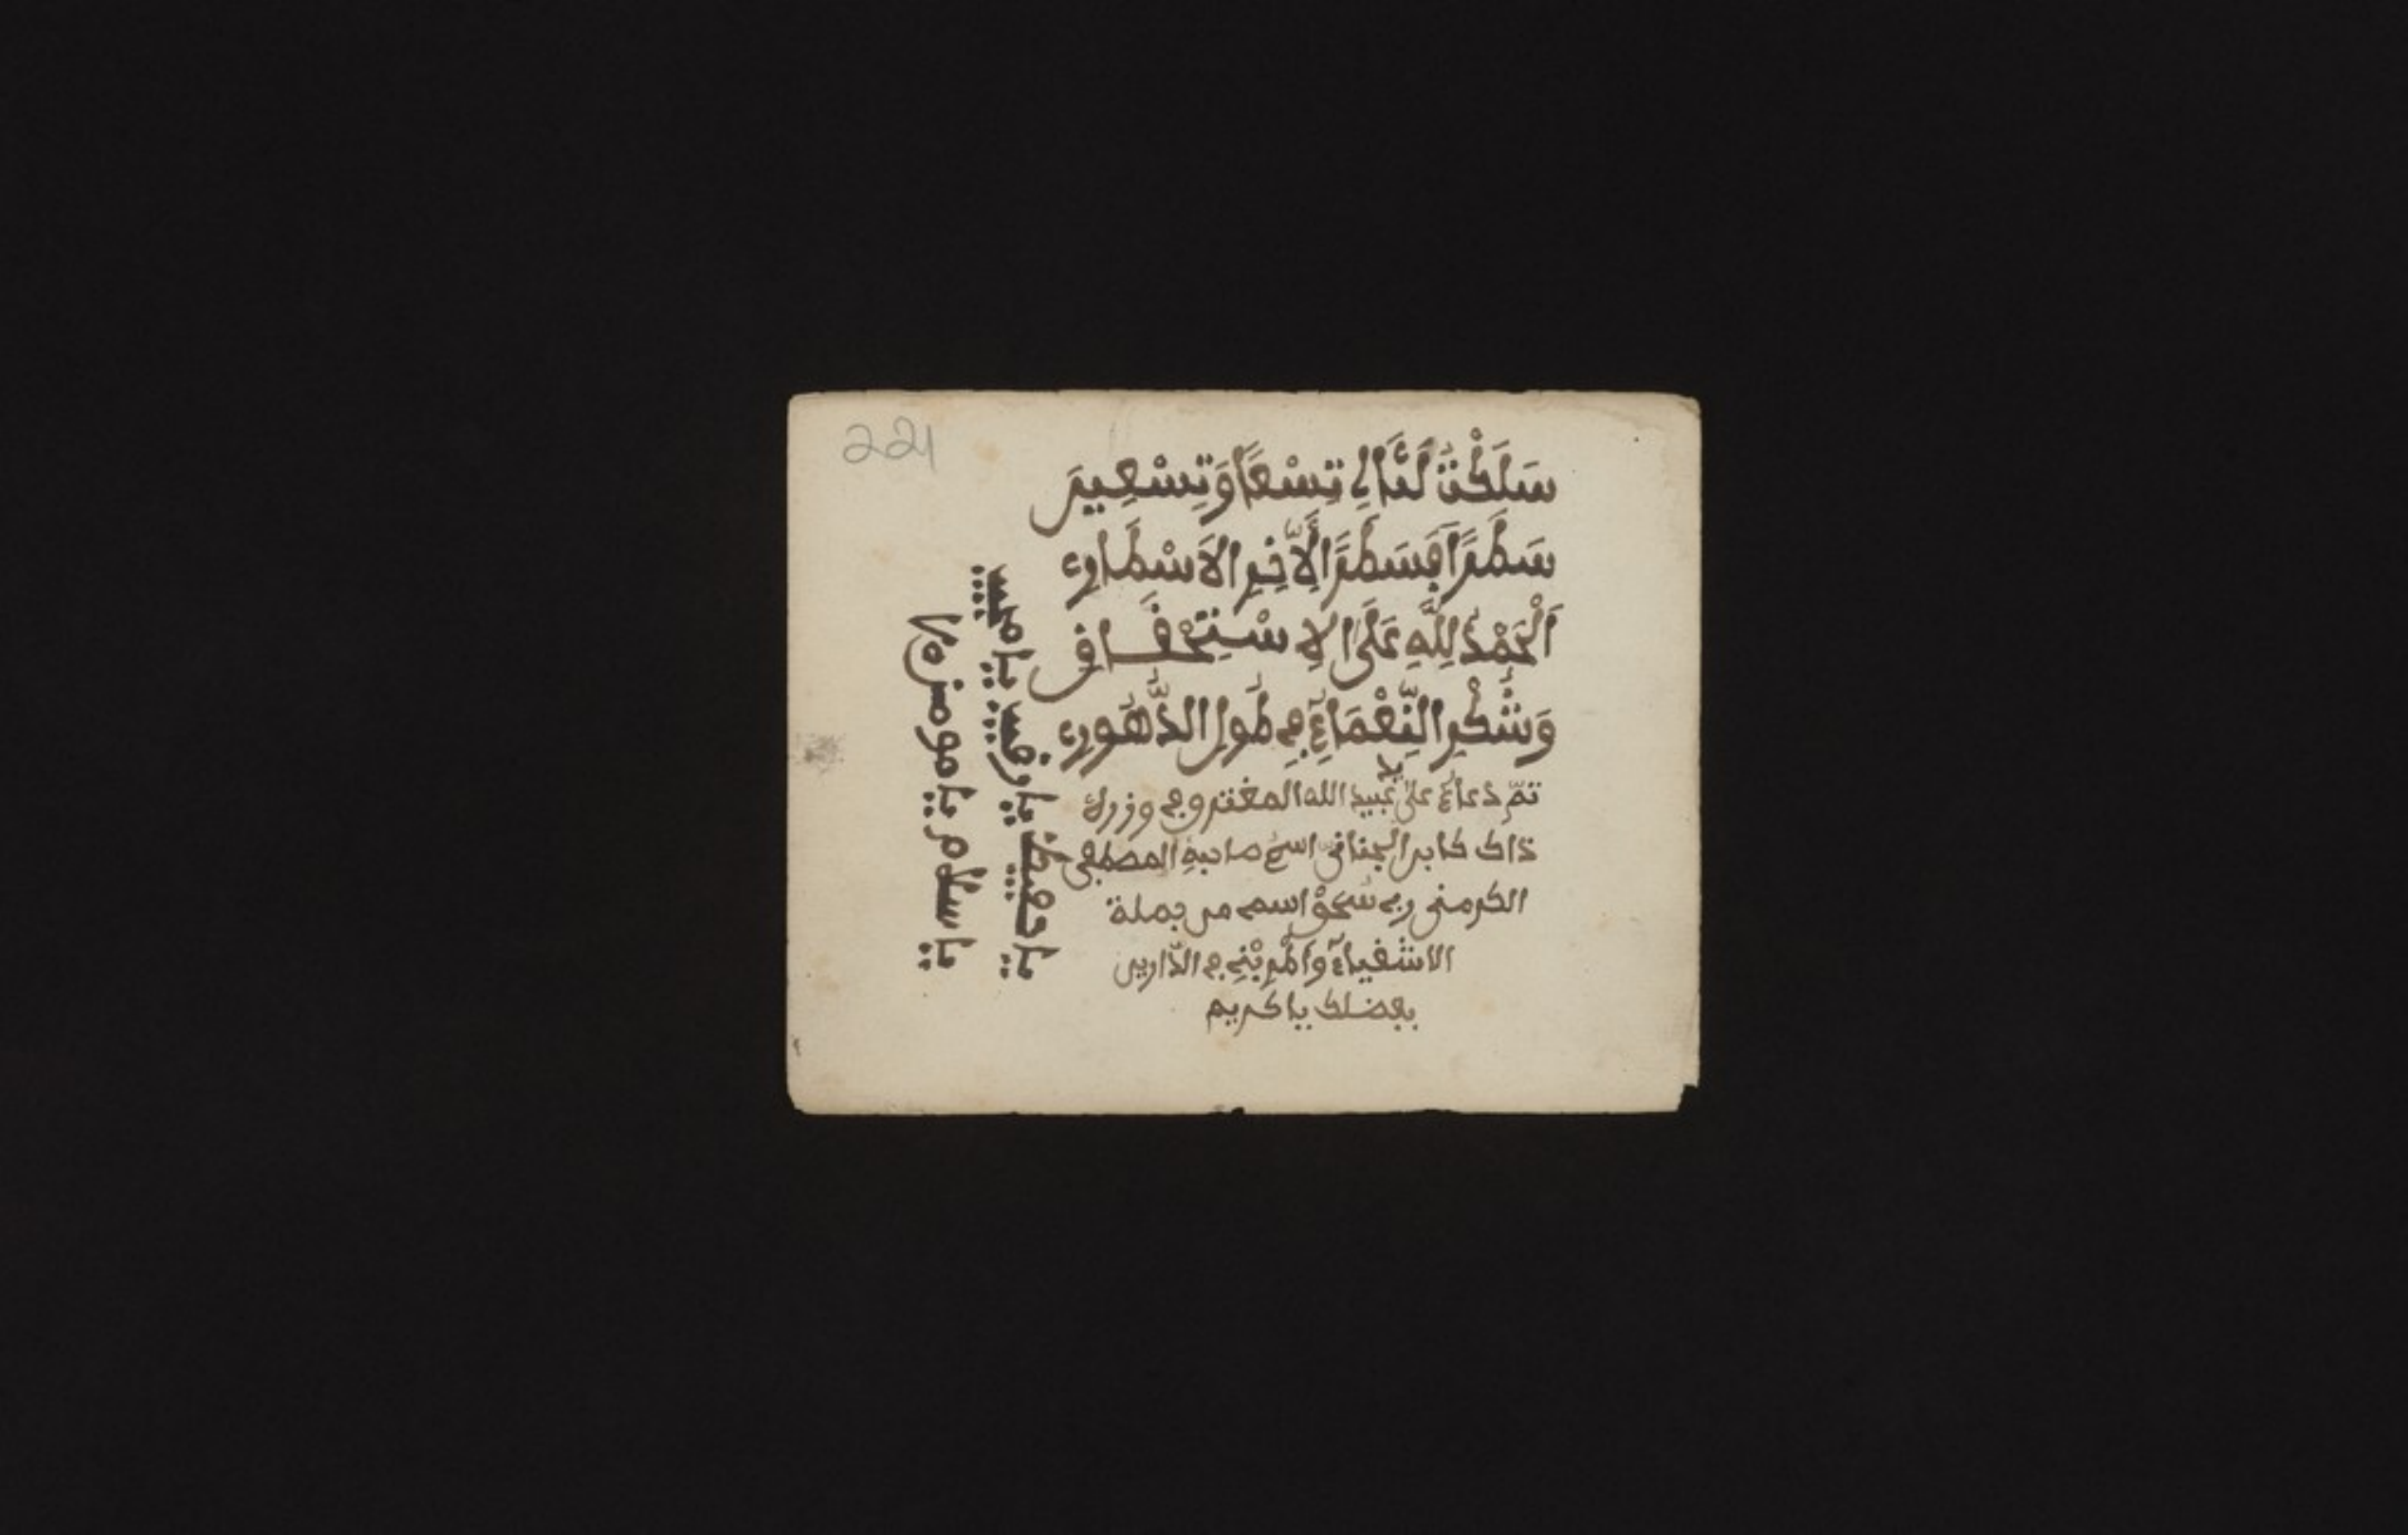 221
سَلَكْتُ لَئَالِ تِسْعًا وَتِسْعِينَ
سَطْرًا فَسَطْرًا لِاٰخِرِ الاَسْطَارِے
اَلْحَمْدُ لِلَّهِ عَلَى الاِسْتِحْقَاقِ
وَشُكْرِ النِّعْمَاءِ فِے طُولِ الدُّهُورِے
تمّ دعاء على يد عبيد الله المغترو فے وزرك
ذاك كابر الجنافى اسم صاحبه المصطفى
الكرمنى رب سحق اسمه من جملة
الاشقياء والمربنے فے الدارين
بفضلك يا كريم
يا حفيظ يا رقيب يا مجيب
يا سلام يا مومن